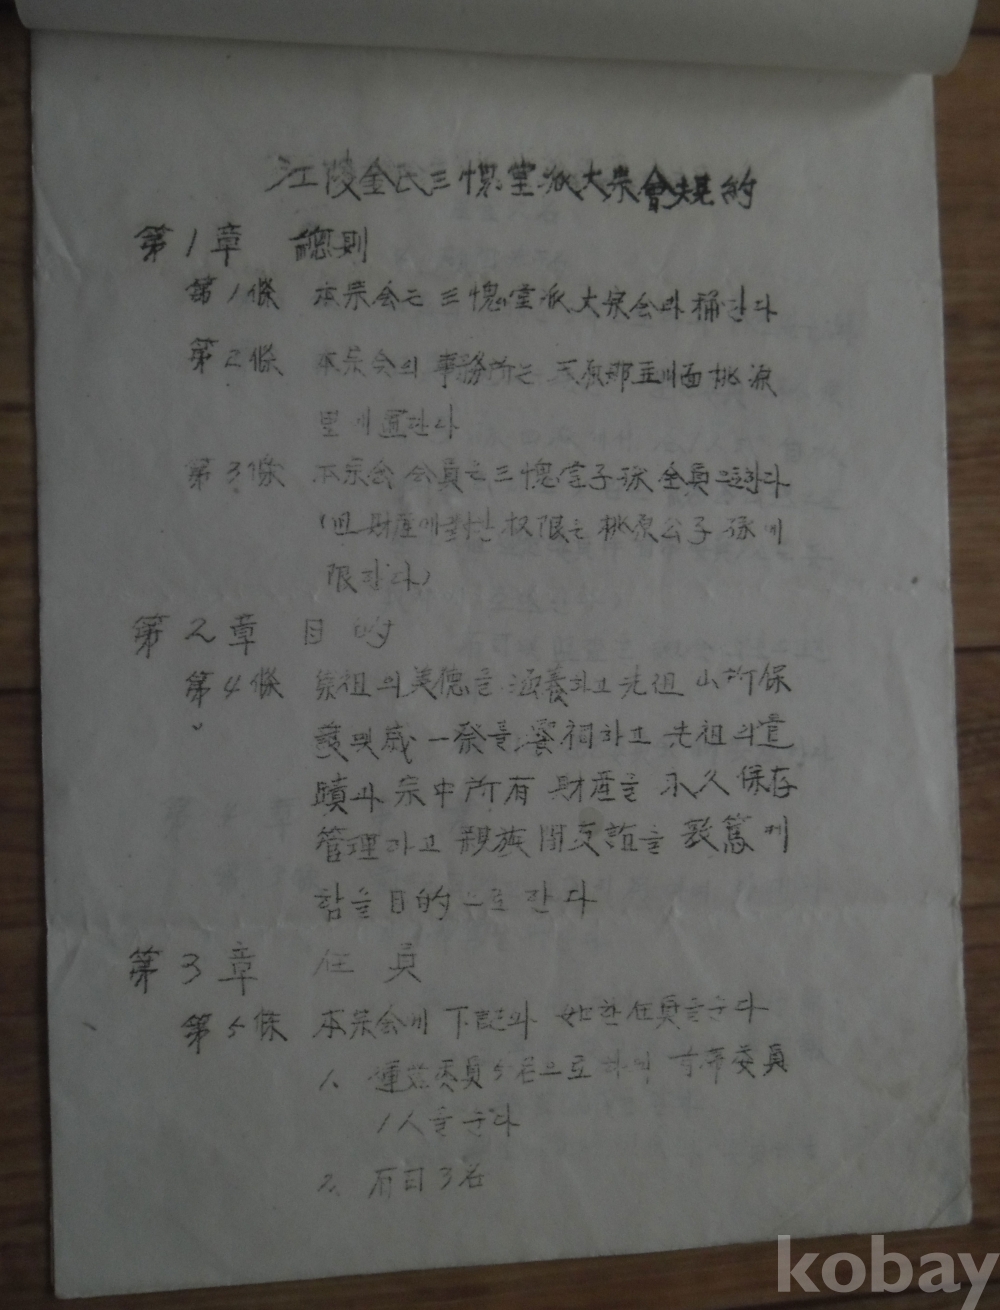 江陵金氏三愧堂派大宗會規約
第1章 總則
第1條 本宗会는 三愧堂派大宗会라 稱한다
第2條 本宗会의 事務所는 天原郡 面桃源
里에 置한다
第3條 本宗会 会員은 三愧堂子孫 全員으로한다
(但 財産에対한 权限은 桃原公子孫에
限한다)
第2章 目的
第4條 祖의 美德을 涵養하고 先祖 山所保
護 및 歲一祭를 하고 先祖의遺
蹟과 宗中所有 財産을 永久保存
管理하고 親族間友誼를 敦篤케
함을 目的으로 한다
第3章 任員
第5條 本宗会에 下記와 如한任員을둔다
1. 運营委員5名으로하며 首席委員
1人을 둔다
2. 有司3名
kobay